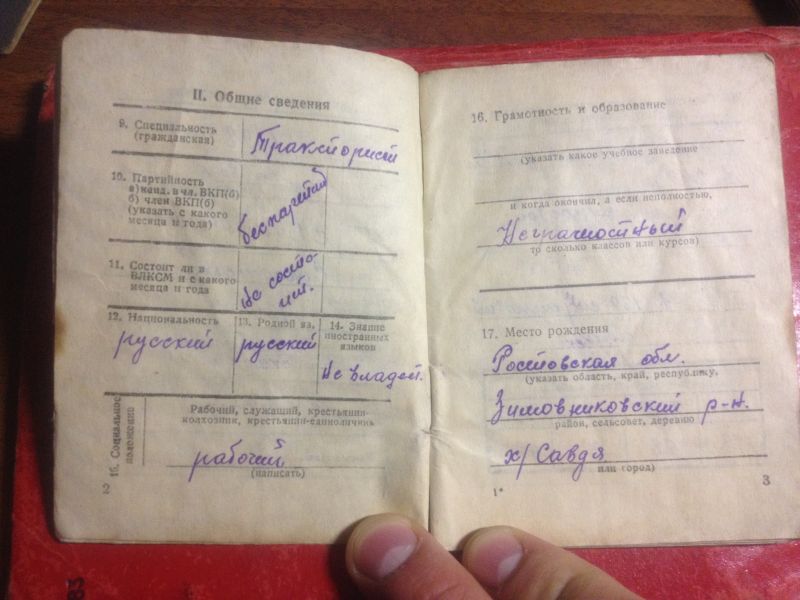 II. Общие сведения
9. Специальность
(гражданская)
Тракторист
10. Партийность
а) канд. в чл. ВКП(б)
б) член ВКП(б)
(указать с какого
месяца и года)
беспартийн
11. Состоит ли в
ВЛКСМ и с какого
месяца и года
Не состо-
ит.
12. Национальность
русский
13. Родной яз.
русский
14. Знание
иностранных
языков
Не владеет.
15. Социальное
положение
Рабочий, служащий, крестьянин-
колхозник, крестьянин-единоличник
рабочий
(написать)
2
16. Грамотность и образование
(указать какое учебное заведение
и когда окончил, а если неполностью,
Неграмотный
то сколько классов или курсов)
17. Место рождения
Ростовская обл.
(указать область, край, республику,
Зимовниковский р-н.
район, сельсовет, деревню
х/ Савдя
или город)
1*
3
83